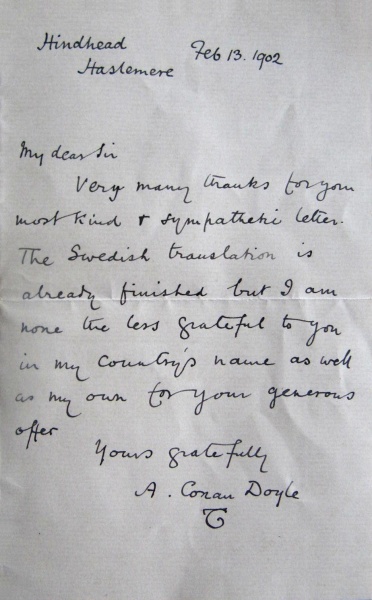 Hindhead
Haslemere
Feb 13. 1902
My dear Sir
Very many thanks for your
most kind & sympathetic letter.
The Swedish translation is
already finished but I am
none the less grateful to you
in my country's name as well
as my own for your generous
offer
Yours gratefully
A. Conan Doyle